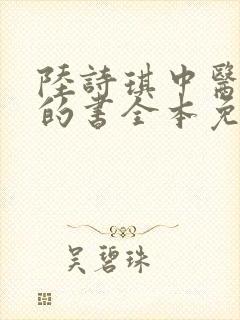 陸詩琪中醫
的書全本免
吳碧珠